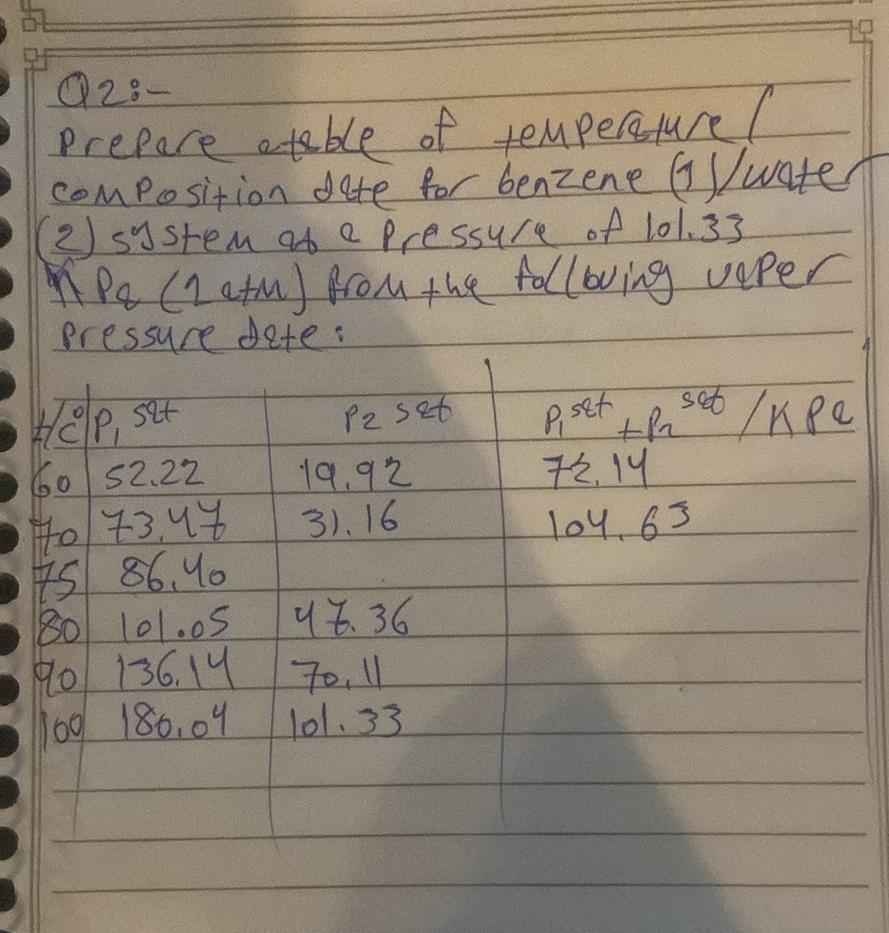 Q2:-
Prepare a table of temperature/
composition date for benzene (1)/water
(2) system as a pressure of 101.33
KPa (1 atm) from the following vaper
pressure date:
t/c° P1 sat P2 sat P1 sat + P2 sat / KPa
60 52.22 19.92 72.14
70 73.47 31.16 104.63
75 86.40
80 101.05 47.36
90 136.14 70.11
100 180.04 101.33